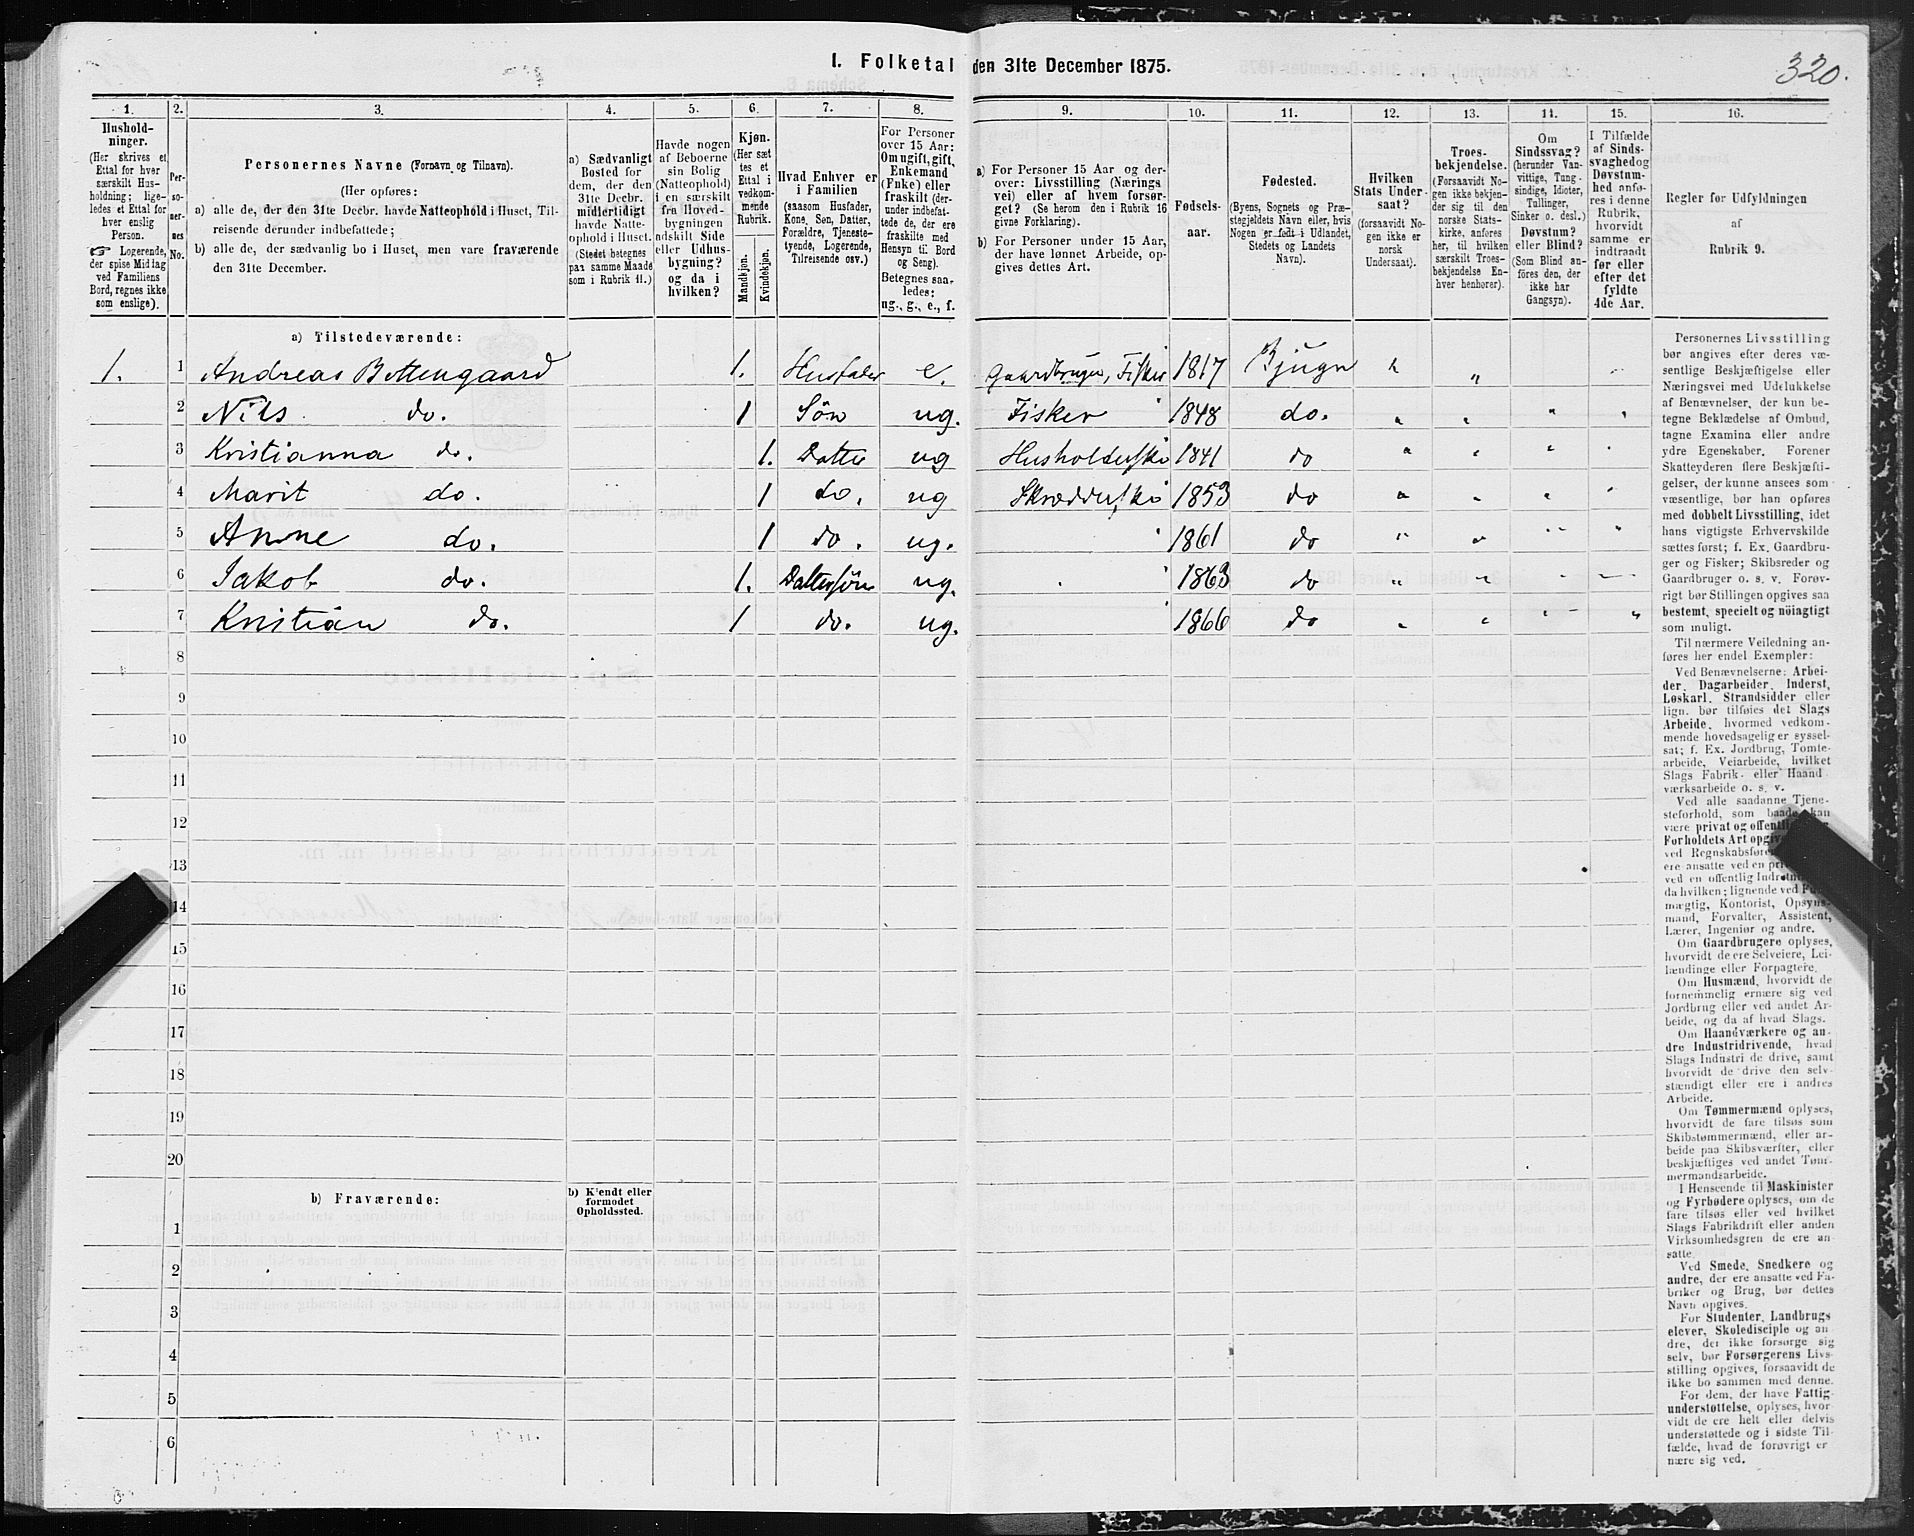 I. Folketal den 31te December 1875.
320.
1. 2. 3. 4. 5. 6. 7. 8. 9. 10. 11. 12. 13. 14. 15. 16.
Hushold-
ninger.
(Her skrives et
Ettal for hver
særskilt Hus-
holdning; lige-
ledes et Ettal for
hver enslig
Person.
☞ Logerende,
der spise Middag
ved Familiens
Bord, regnes ikke
som enslige).
Per-
so-
ner-
nes
No.
Personernes Navne (Fornavn og Tilnavn).
(Her opføres:
a) alle de, der den 31te Decbr. havde Natteophold i Huset, Til-
reisende derunder indbefattede;
b) alle de, der sædvanlig bo i Huset, men vare fraværende
den 31te December.
a) Sædvanligt
Bosted for
dem, der den
31te Decbr.
midlertidigt
havde Natte-
ophold i Huset.
(Stedet betegnes
paa samme Maade
som i Rubrik 11.)
Havde nogen
af Beboerne
sin Bolig
(Natteophold)
i en særskilt
fra Hoved-
bygningen
adskilt Side
eller Udhus-
bygning?
og da i
hvilken?
Kjøn.
(Her sæt
tes et
Ettal i
vedkom-
mende
Rubrik.
Mandkjøn.
Kvindekjøn.
Hvad Enhver er
i Familien
(saasom Husfader,
Kone, Søn, Datter,
Forældre, Tjeneste-
tyende, Logerende,
Tilreisende osv.)
For Personer
over 15 Aar:
Om ugift, gift,
Enkemand
(Enke) eller
fraskilt (der-
under indbefat-
tede de, der ere
fraskilte med
Hensyn til Bord
og Seng).
Betegnes saa-
ledes:
ug., g., e., f.
a) For Personer 15 Aar og der-
over: Livsstilling (Nærings
vei) eller af hvem forsør-
get? (Se herom den i Rubrik 16
givne Forklaring).
b) For Personer under 15 Aar,
der have lønnet Arbeide, op-
gives dettes Art.
Fødsels-
aar.
Fødested.
(Byens, Sognets og Præ-
stegjeldets Navn eller, hvis
Nogen er født i Udlandet,
Stedets og Landets
Navn).
Hvilken
Stats Under-
saat?
(forsaavidt No-
gen ikke er
norsk
Undersaat).
Troes-
bekjendelse.
(Forsaavidt No-
gen ikke bekjen-
der sig til den
norske Stats-
kirke, anføres
her, til hvilken
særskilt Troes-
bekjendelse En-
hver henhører).
Om
Sindssvag?
(herunder Van-
vittige, Tung-
sindige, Idioter,
Tullinger,
Sinker o. desl.)
Døvstum?
eller Blind?
(Som Blind an-
føres den, der
ikke har
Gangsyn).
I Tilfælde
af Sinds-
svaghed og
Døvstum-
hed anfø-
res i denne
Rubrik,
hvorvidt
samme er
indtraadt
før eller
efter det
fyldte
4de Aar.
Regler for Udfyldningen
af
Rubrik 9.
a) Tilstedeværende:
1. 1 Andreas Bottengaard 1. Husfader e. Gaardbruger, Fisker 1817 Bjugn
2 Nils do. 1 Søn ug. Fisker 1848 do. " " " "
3 Kristianna do. 1. Datter ug 1841 do " " " "
4 Marit do. 1 do. ug 1853 do " " " "
5 Anne do. 1 do. ug. 1861 do " " " "
6 Jakob do. 1. Dattersøn ug. 1863 do " "
7 Kristian do. 1 do. ug. 1866 do " " " "
8
9
10
11
12
13
14
15
16
17
18
19
20
b) Fraværende:
b) Kjendt eller
formodet
Opholdssted.
1
2
3
4
5
6
Personernes Livsstilling
bør angives efter deres væ-
sentlige Beskjæftigelse eller
Næringsvei med Udelukkelse
af Benævnelser, der kun be-
tegne Beklædelse af Ombud,
tagne Examina eller andre
ydre Egenskaber. Forener
Skatteyderen flere Beskjæfti-
gelser, der kunne ansees som
væsentlige, bør han opføres
med dobbelt Livsstilling, idet
hans vigtigste Erhvervskilde
sættes først; f. Ex. Gaardbru-
ger og Fisker; Skibsreder og
Gaardbruger o. s. v. Forøv-
rigt bør Stillingen opgives saa
bestemt, specielt og nöiagtigt
som muligt.
Til nærmere Veiledning an-
føres her endel Exempler:
Ved Benævnelserne: Arbei-
der, Dagarbeider, Inderst,
Løskarl, Strandsidder eller
lign. bør tilføies det Slags
Arbeide, hvormed vedkom-
mende hovedsagelig er syssel-
sat; f. Ex. Jordbrug, Tomte-
arbeide, Veiarbeide, hvilket
Slags Fabrik- eller Haand
værksarbeide o. s. v.
Ved alle saadanne Tjene-
steforhold, som baade kan
være privat og
Forholdets Art
ved
ere ansatte ved en
ved en offentlig
da hvilken; lignende ved
mægtig, Kontorist,
mand, Forvalter, Assistent,
Lærer, Ingeniør og andre.
Om Gaardbrugere oplyses,
hvorvidt de ere Selveiere, Lei-
lændinge eller Forpagtere.
Om Husmænd, hvorvidt de
fornemmelig ernære sig ved
Jordbrug eller ved andet Ar-
beide, og da af hvad Slags.
Om Haandværkere og an-
dre Industridrivende, hvad
Slags Industri de drive, samt
hvorvidt de drive den selv-
stændigt eller ere i andres
Arbeide.
Om Tømmermænd oplyses,
hvorvidt de fare tilsøs som
Skibstømmermænd, eller ar-
beide paa Skibsværfter, eller
beskjæftiges ved andet Tøm-
mermandsarbeide.
I Henseende til Maskinister
og Fyrbødere oplyses, om de
fare tilsøs eller ved hvilket
Slags Fabrikdrift eller anden
Virksomhedsgren de ere an-
satte.
Ved Smede, Snedkere og
andre, der ere ansatte ved Fa-
briker og Brug, bør dettes
Navn opgives.
For Studenter, Landbrugs
elever, Skoledisciple og an
dre, der ikke forsørge sig
selv, bør Forsørgerens Livs-
stilling opgives, forsaavidt de
ikke bo sammen med denne.
For dem, der have Fattig-
understøttelse, oplyses, hvor-
vidt de ere helt eller delvis
understøttede og i sidste Til-
fælde, hvad de forøvrigt er
nære sig ved.